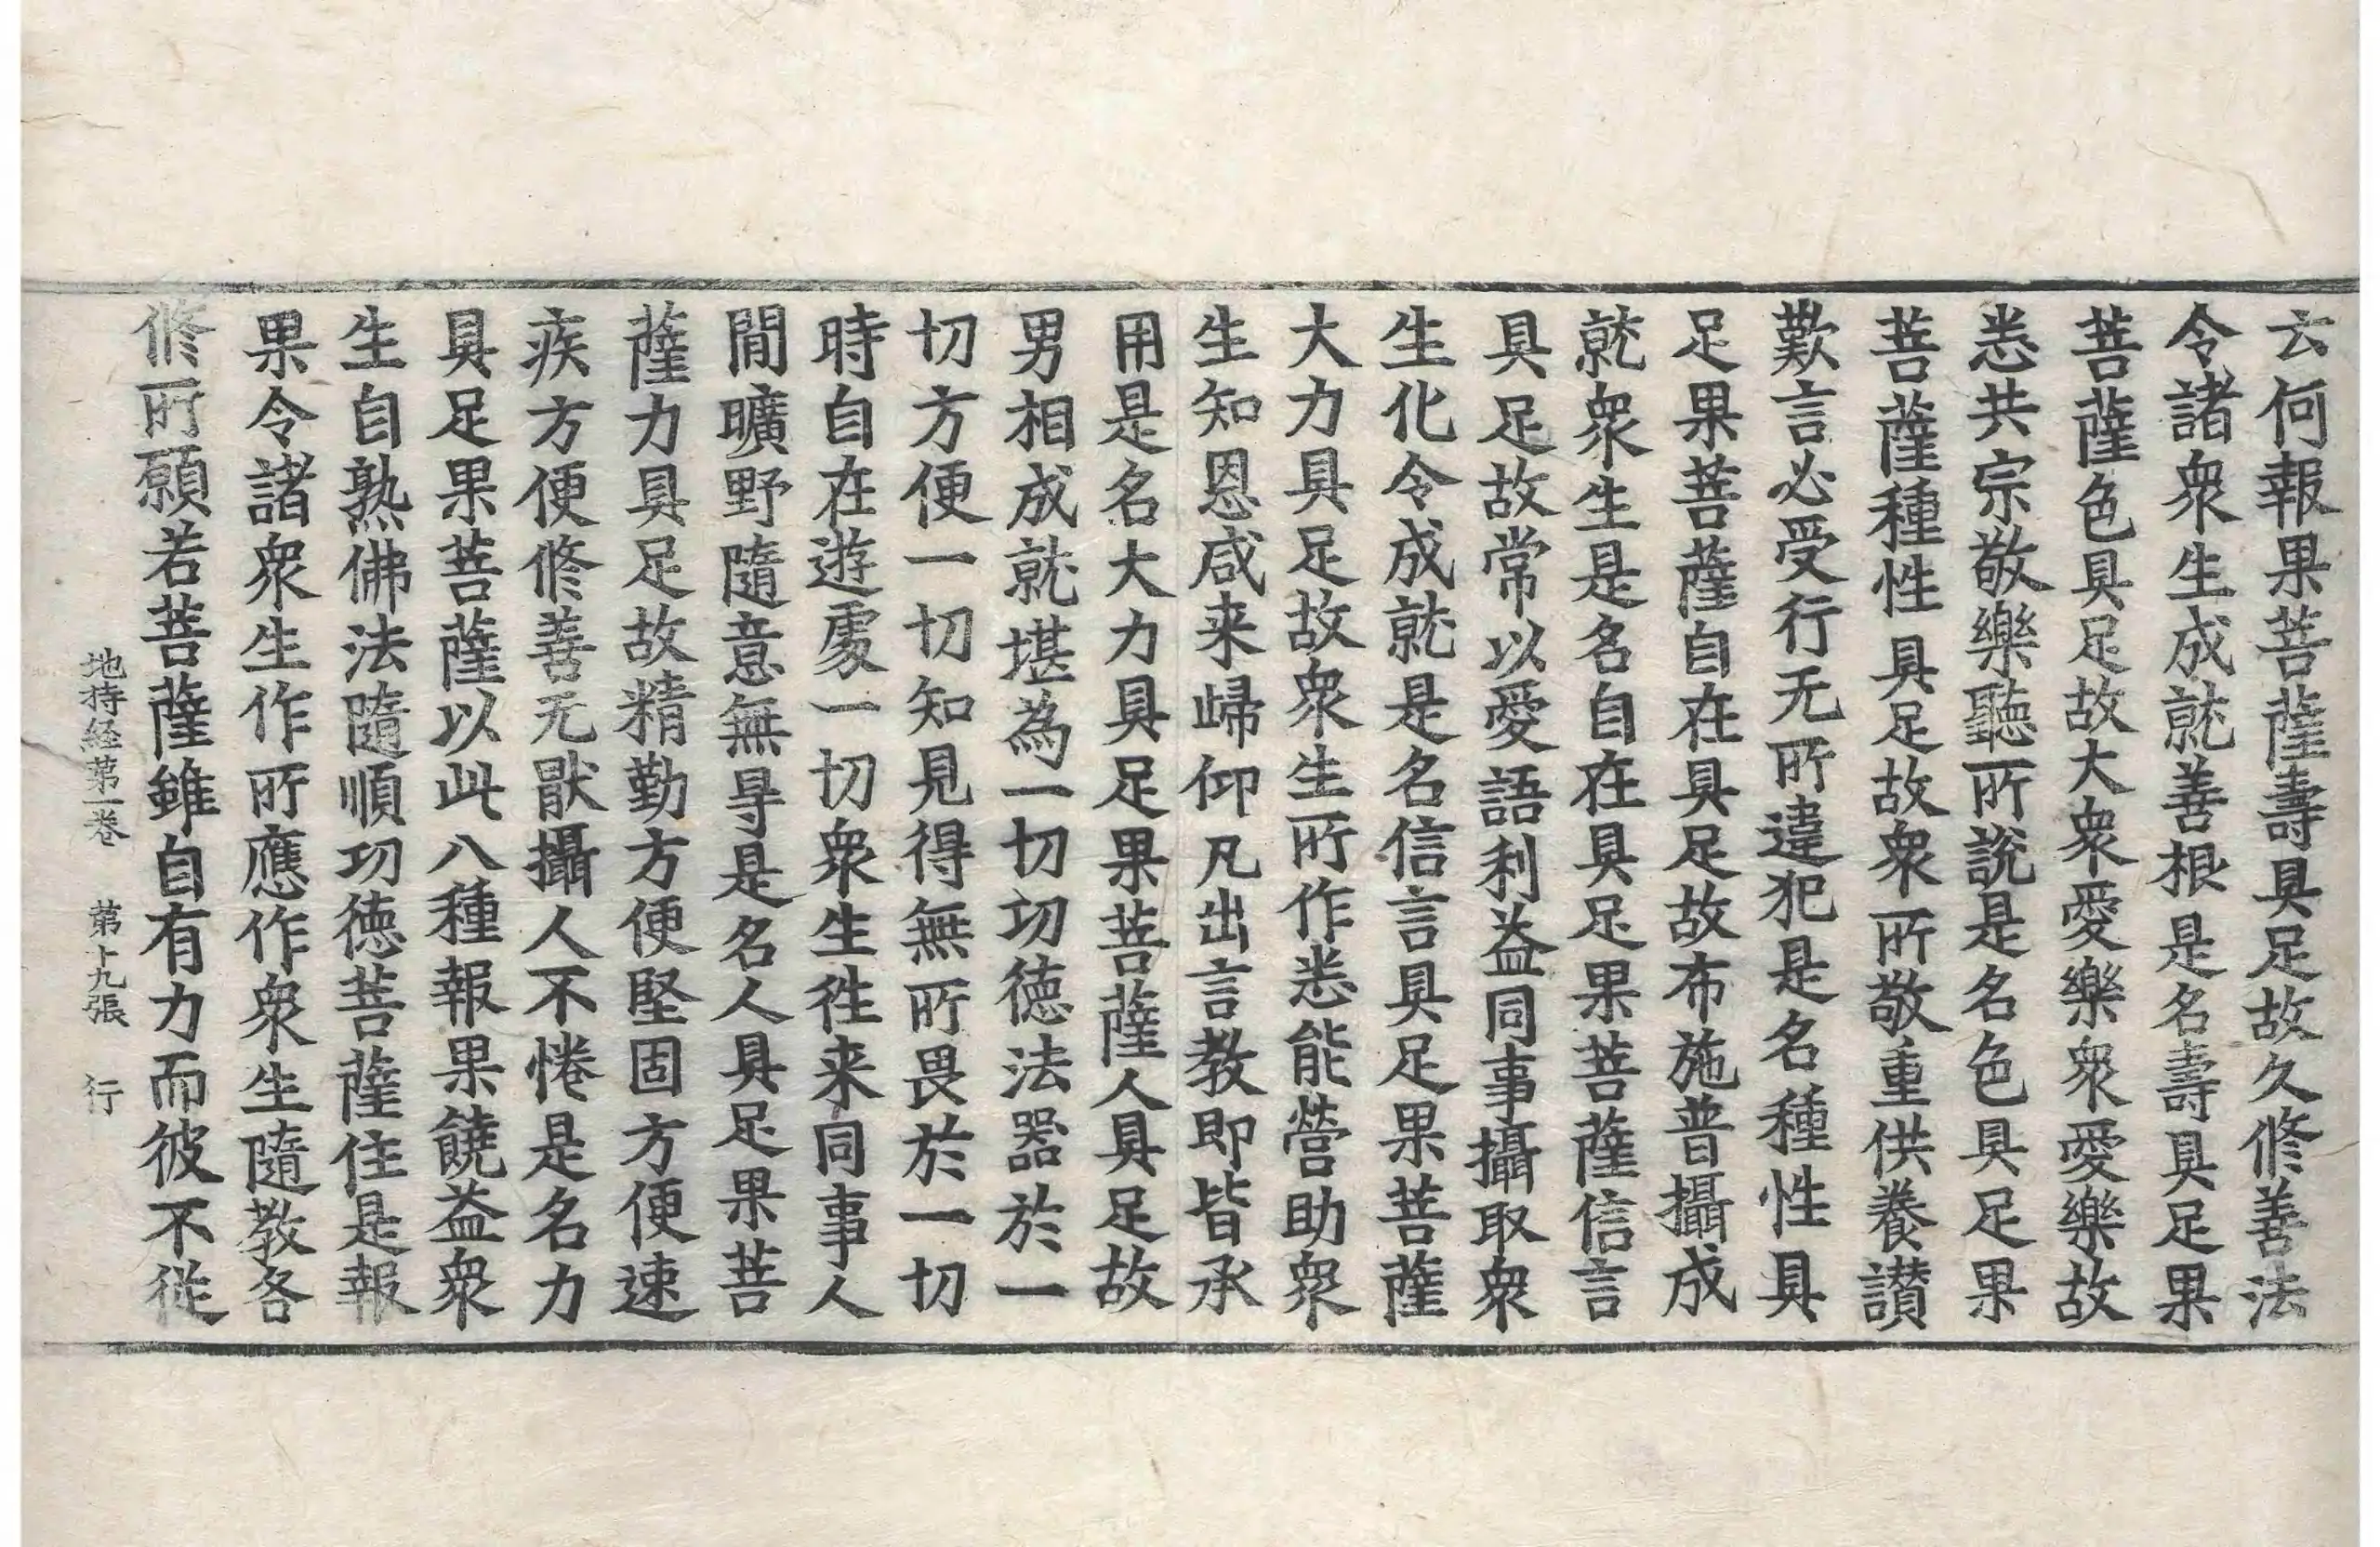 云何報果菩薩壽具足故久修善法
令諸衆生成就善根是名壽具足果
菩薩色具足故大衆愛樂衆愛樂故
悉共宗敬樂聽所說是名色具足果
菩薩種性具足故衆所敬重供養讃
歎言必受行无所違犯是名種性具
足果菩薩自在具足故布施普攝成
就衆生是名自在具足果菩薩信言
具足故常以愛語利益同事攝取衆
生化令成就是名信言具足果菩薩
大力具足故衆生所作悉能營助衆
生知恩咸来歸仰凡出言教即皆承
用是名大力具足果菩薩人具足故
男相成就堪為一切功德法器於一
切方便一切知見得無所畏於一切
時自在遊處一切衆生徃来同事人
間曠野隨意無㝵是名人具足果菩
薩力具足故精勤方便堅固方便速
疾方便修善无猒攝人不惓是名力
具足果菩薩以此八種報果饒益衆
生自熟佛法隨順功徳菩薩住是報
果令諸衆生作所應作衆生隨教各
修所願若菩薩雖自有力而彼不從
地持経苐一巻 苐十九張 行